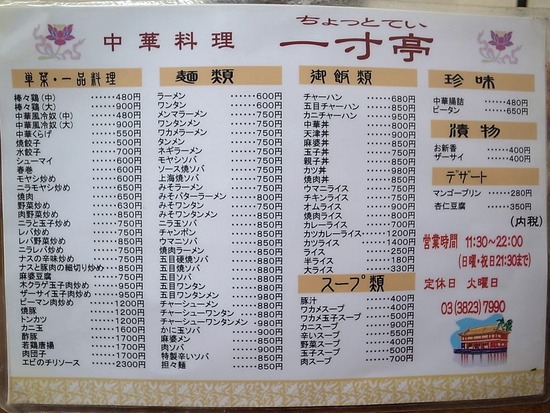 中華料理
ちょっとてい
一寸亭
単菜・一品料理
棒々鶏(中)・・・・・・480円
棒々鶏(大)・・・・・・900円
中華風冷奴(中)・・・480円
中華風冷奴(大)・・・900円
中華くらげ・・・・・・550円
焼餃子・・・・・・500円
水餃子・・・・・・700円
シューマイ・・・・・・600円
春巻・・・・・・600円
モヤシ炒め・・・・・・600円
ニラモヤシ炒め・・・650円
焼肉・・・・・・650円
野菜炒め・・・・・・630円
肉野菜炒め・・・・・・750円
ニラと玉子炒め・・・750円
レバ炒め・・・・・・750円
レバ野菜炒め・・・・・・850円
ニラレバ炒め・・・・・・850円
ナスの辛味炒め・・・850円
ナスと豚肉の細切り炒め・・850円
麻婆豆腐・・・・・・850円
木クラゲ玉子肉炒め・・・1200円
ザーサイ玉子肉炒め・・・1200円
ピーマン肉炒め・・・1200円
焼豚・・・・・・1200円
トンカツ・・・・・・1200円
カニ玉・・・・・・1700円
酢豚・・・・・・1700円
若鶏唐揚・・・・・・1700円
肉団子・・・・・・1700円
エビのチリソース・・・2300円
麺類
ラーメン・・・・・・600円
ワンタン・・・・・・600円
メンマラーメン・・・750円
ワンタンメン・・・・・・750円
ワカメラーメン・・・750円
タンメン・・・・・・750円
ネギラーメン・・・・・・750円
モヤシソバ・・・・・・750円
ソース焼ソバ・・・・・・750円
上海焼ソバ・・・・・・750円
みそラーメン・・・・・・750円
みそバターラーメン・・・800円
みそワンタン・・・・・・800円
みそワンタンメン・・・850円
ニラ玉ソバ・・・・・・850円
チャンポン・・・・・・850円
ウマニソバ・・・・・・850円
焼肉ラーメン・・・・・・850円
五目硬焼ソバ・・・・・・850円
五目焼ソバ・・・・・・850円
五目ソバ・・・・・・850円
五目ワンタン・・・・・・850円
五目ワンタンメン
チャーシューメン
チャーシューワンタン
チャーシューワンタンメン
かに玉ソバ
麻婆メン
肉ソバ
特製辛いソバ・・・850円
担々麺・・・・・・850円
御飯類
チャーハン・・・・・・680円
五目チャーハン・・・850円
カニチャーハン・・・950円
中華丼・・・・・・850円
天津丼・・・・・・850円
麻婆丼・・・・・・850円
玉子丼・・・・・・850円
親子丼・・・・・・850円
カツ丼・・・・・・850円
焼肉丼・・・・・・850円
ウマニライス・・・850円
チキンライス・・・850円
オムライス・・・・・・900円
焼肉ライス・・・・・・900円
カレーライス・・・700円
カツカレーライス・・・1200円
カツライス・・・・・・1400円
ライス・・・・・・250円
半ライス・・・・・・180円
大ライス・・・・・・330円
スープ類
豚汁・・・・・・400円
ワカメスープ・・・400円
ワカメ玉子スープ・・・400円
カニスープ・・・・・・900円
辛いスープ・・・・・・400円
野菜スープ・・・・・・400円
玉子スープ・・・・・・500円
肉スープ・・・・・・700円
珍味
中華腸詰・・・・・・480円
ピータン・・・・・・650円
漬物
お新香・・・・・・400円
ザーサイ・・・・・・400円
デザート
マンゴープリン・・・280円
杏仁豆腐・・・・・・350円
(内税)
営業時間 11:30~22:00
(日曜・祝日21:30まで)
定休日 火曜日
03(3823)7990